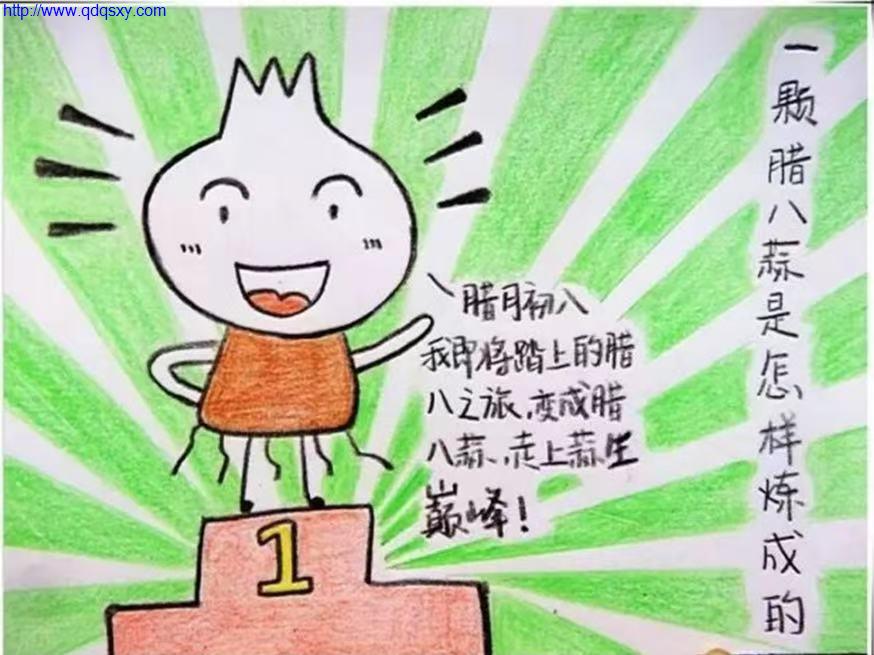 http://www.qdqsxy.com
一颗腊八蒜是怎样炼成的
腊月初八
我即将踏上的腊
八之旅,变成腊
八蒜,走上蒜生
巅峰!
1